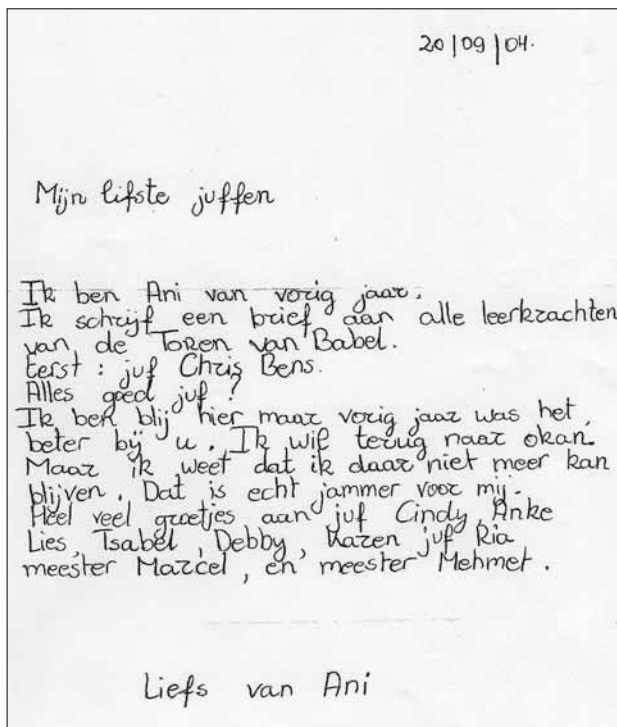 20|09|04.
Mijn lifste juffen
Ik ben Ani van vorig jaar.
Ik schrijf een brief aan alle leerkrachten
van de Toren van Babel.
Eerst : juf Chris Bens.
Alles goed juf ?
Ik ben blij hier maar vorig jaar was het
beter bij u. Ik wil terug naar okan.
Maar ik weet dat ik daar niet meer kan
blijven. Dat is echt jammer voor mij.
Heel veel groetjes aan juf Cindy, Anke
Lies, Isabel, Debby, Karen juf Ria
meester Marcel, en meester Mehmet.
Liefs van Ani